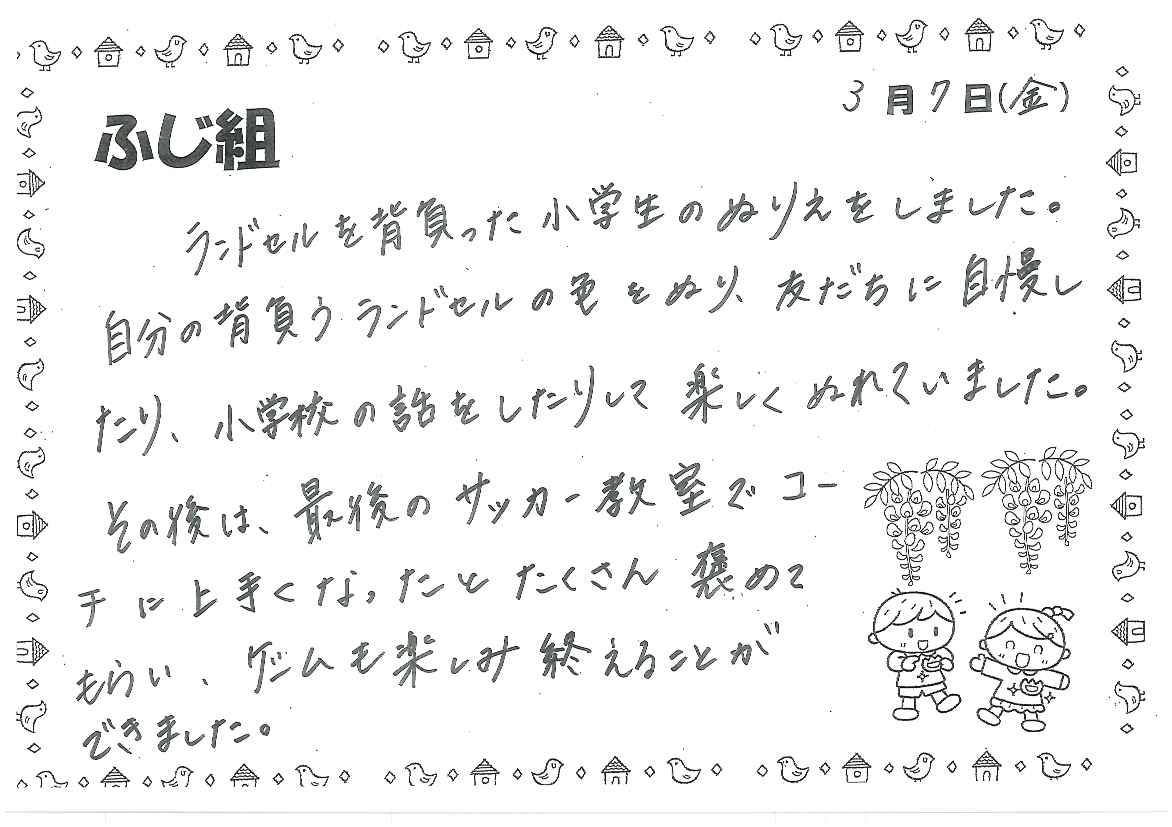 3月7日(金)
ふじ組
ランドセルを背負った小学生のぬりえをしました。
自分の背負うランドセルの色をぬり、友だちに自慢し
たり、小学校の話をしたりして楽しくぬれていました。
その後は、最後のサッカー教室でコー
チに上手くなったとたくさん褒めて
もらい、ゲームも楽しみ終えることが
できました。